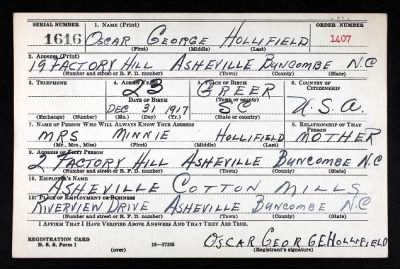 SERIAL NUMBER 1. NAME (Print) ORDER NUMBER
1616 OSCAR GEORGE HOLLIFIELD 1407
(First) (Middle) (Last)
2. ADDRESS (Print)
19 FACTORY HILL ASHEVILLE BUNCOMBE N.C
(Number and street or R. F. D. number) (Town) (County) (State)
3. TELEPHONE 4. AGE IN YEARS 5. PLACE OF BIRTH 6. COUNTRY OF CITIZENSHIP
23 GREER
DATE OF BIRTH (Town or county)
DEC 31 1917 SC U.S.A.
(Exchange) (Number) (Mo.) (Day) (Yr.) (State or country)
7. NAME OF PERSON WHO WILL ALWAYS KNOW YOUR ADDRESS 8. RELATIONSHIP OF THAT PERSON
MRS MINNIE HOLLIFIELD MOTHER
(Mr., Mrs., Miss) (First) (Middle) (Last)
9. ADDRESS OF THAT PERSON
2 FACTORY HILL ASHEVILLE BUNCOMBE N.C
(Number and street or R. F. D. number) (Town) (County) (State)
10. EMPLOYER'S NAME
ASHEVILLE COTTON MILLS
11. PLACE OF EMPLOYMENT OR BUSINESS
RIVERVIEW DRIVE ASHEVILLE BUNCOMBE N.C
(Number and street or R. F. D. number) (Town) (County) (State)
I AFFIRM THAT I HAVE VERIFIED ABOVE ANSWERS AND THAT THEY ARE TRUE.
REGISTRATION CARD
D. S. S. Form 1 (over) 16—17105 OSCAR GEORGE HOLLIFIELD
(Registrant's signature)